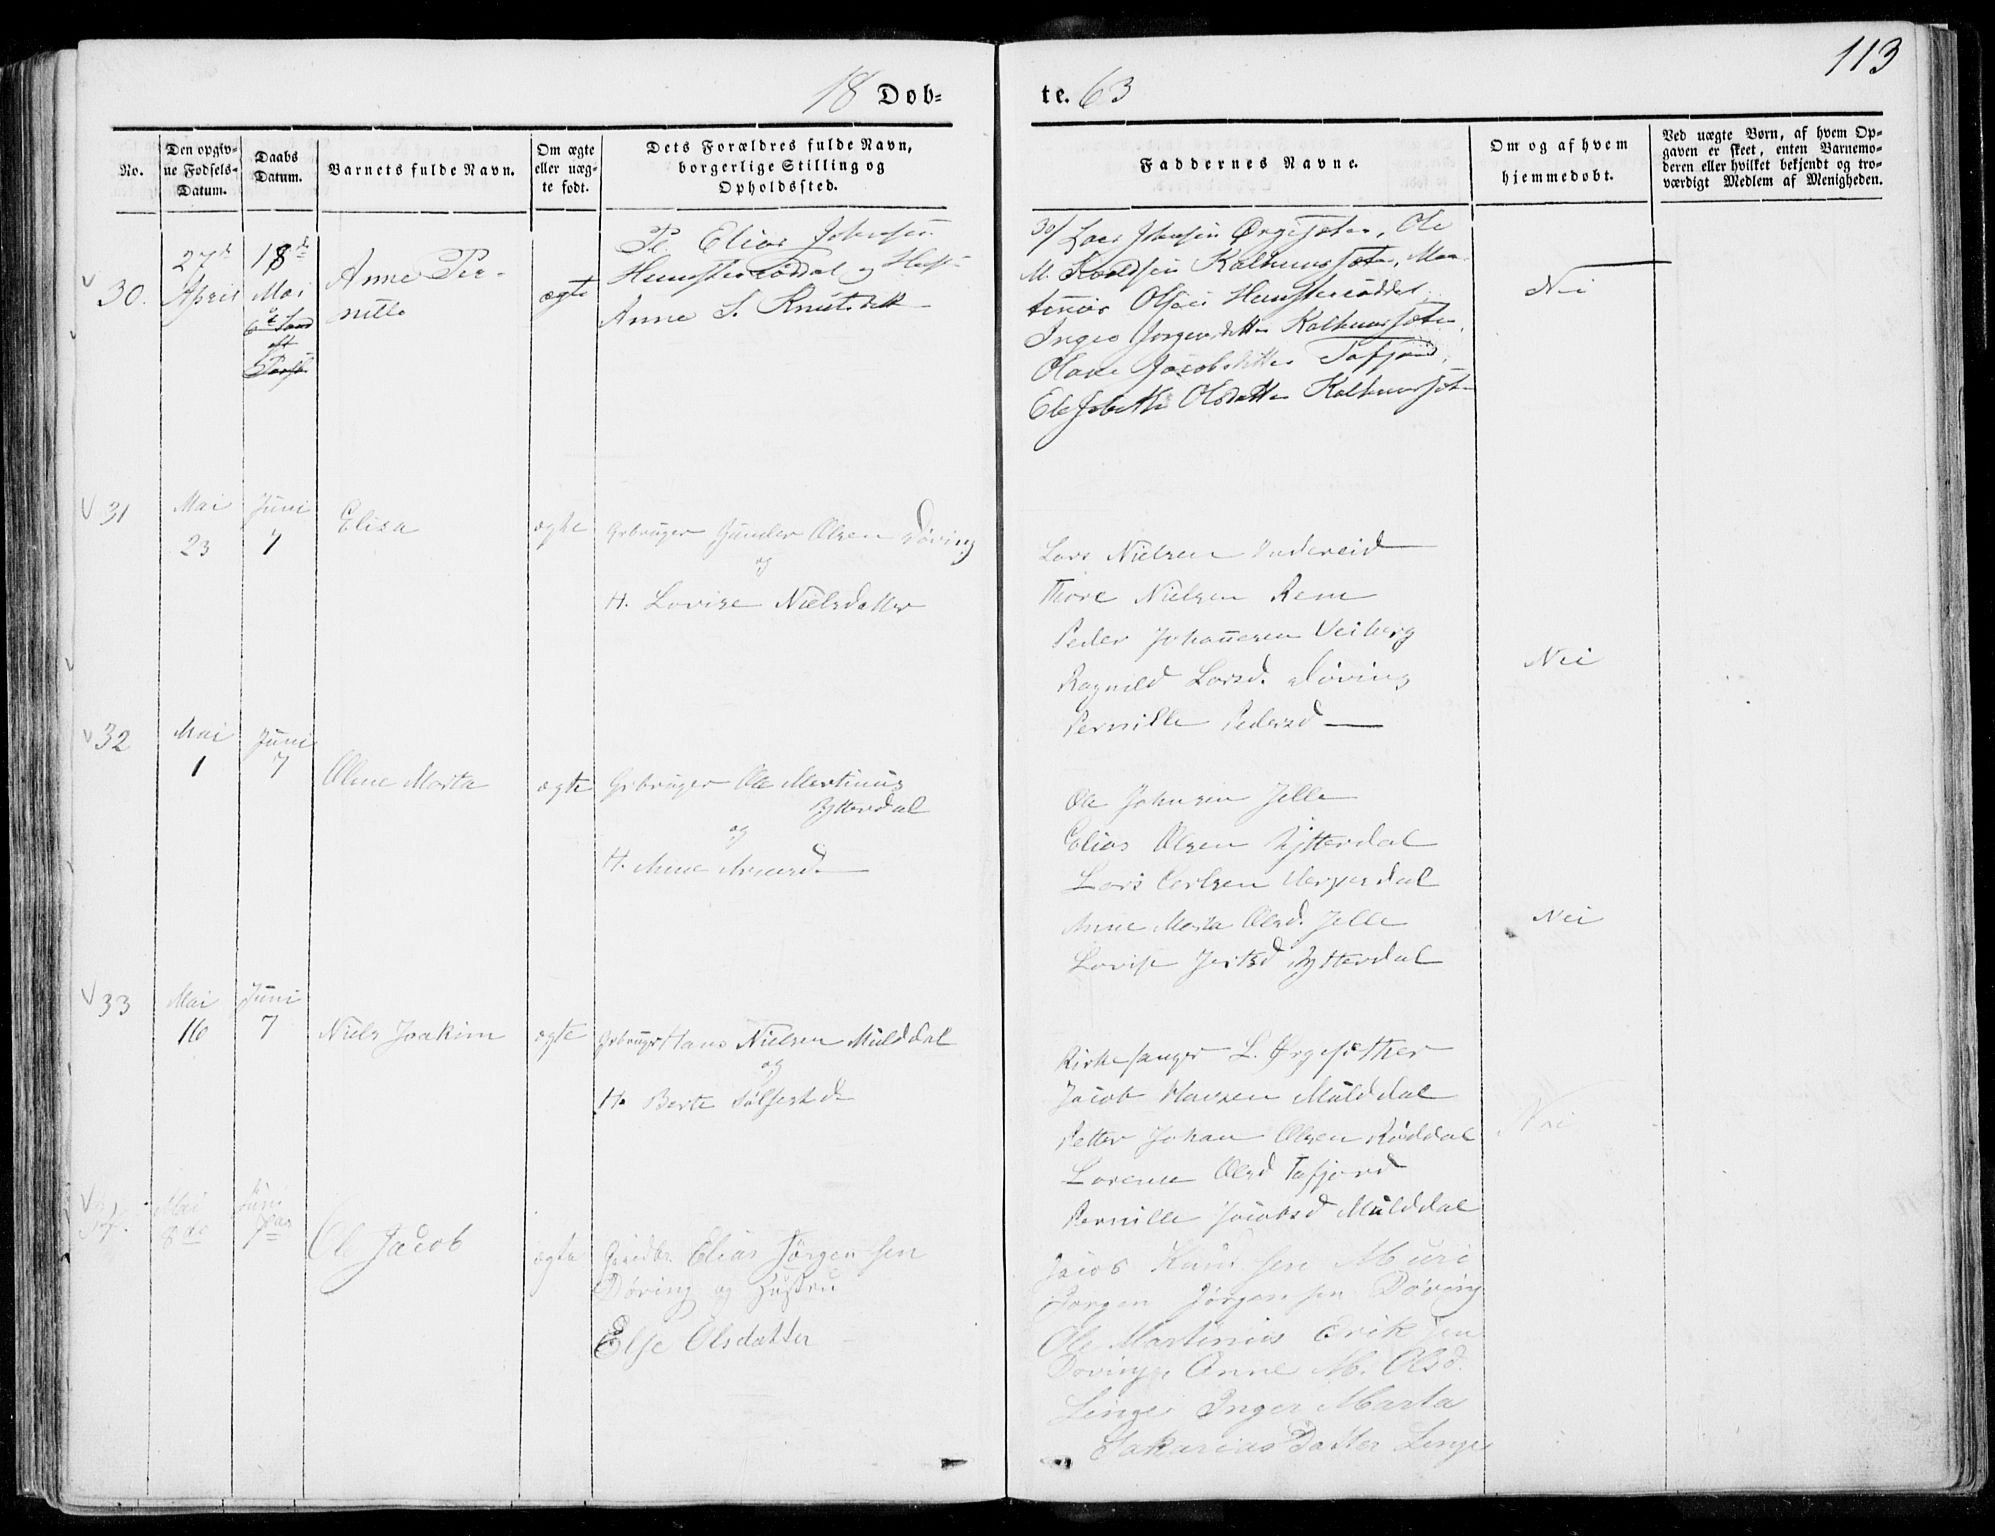 113
18 Døb=
te. 63
No.
Den opgiv=
ne Fødsels=
Datum.
Daabs
Datum.
Barnets fulde Navn.
Om ægte
eller uæg=
te født.
Dets Forældres fulde Navn,
borgerlige Stilling og
Opholdssted.
Faddernes Navne.
Om og af hvem
hjemmedøbt.
Ved uægte Børn, af hvem Op=
gaven er skeet, enten Barnemo=
deren eller hvilket bekjendt og tro=
værdigt Medlem af Menigheden.
30.
27de
April
18de
Mai
Anne Per-
nille
ægte
Elias Johnsen
og
Anne S. Knutsdtt
30/ Lars Johnsen Ørgesæter, Ole
M.
Olsen
Jørgensdatter
Jacobsdatter Tafjord,
Olsdatter
Nei
31
Mai
23
Juni
7
Elisa
ægte
Grbruger Gunder Olsen Døving
og
H. Lovise Nielsdatter
Lars Nielsen Indereid
Thore Nielsen Rem
Peder Johannesen Veiberg
Ragnild Larsd. Døving
Pernille Pedersd —
Nei
32
Mai
1
Juni
7
Oline Marta
ægte
Grbruger Ole Martinus
Ytterdal
og
H. Anne
Ole Johnsen Jelle
Elias Olsen Ytterdal
Lars Carlsen
Anne Marta Olsd. Jelle
Lovise Ytterdal
Nei
33
Mai
16
Juni
7
Niels Joakim
ægte
Grbruger Hans Nielsen Mulddal
og
H. Berte
Kirkesanger L. Ørgesæther
Jacob Hansen Mulddal
Petter Johan Olsen Røddal
Lorense Olsd Tafjord
Pernille Jacobsd Mulddal
Nei
34.
Mai
8de
Juni
7de
Ole Jacob
ægte
Gaardbr. Elias Jørgensen
Døving og Hustru
Else Olsdatter
Jacob Knudsen Muri
Jørgen Jørgensen Døving
Ole Martinus Eriksen
Døving, Anne M. Olsd.
Linge Inger Marta
Sakarias Datter Linge